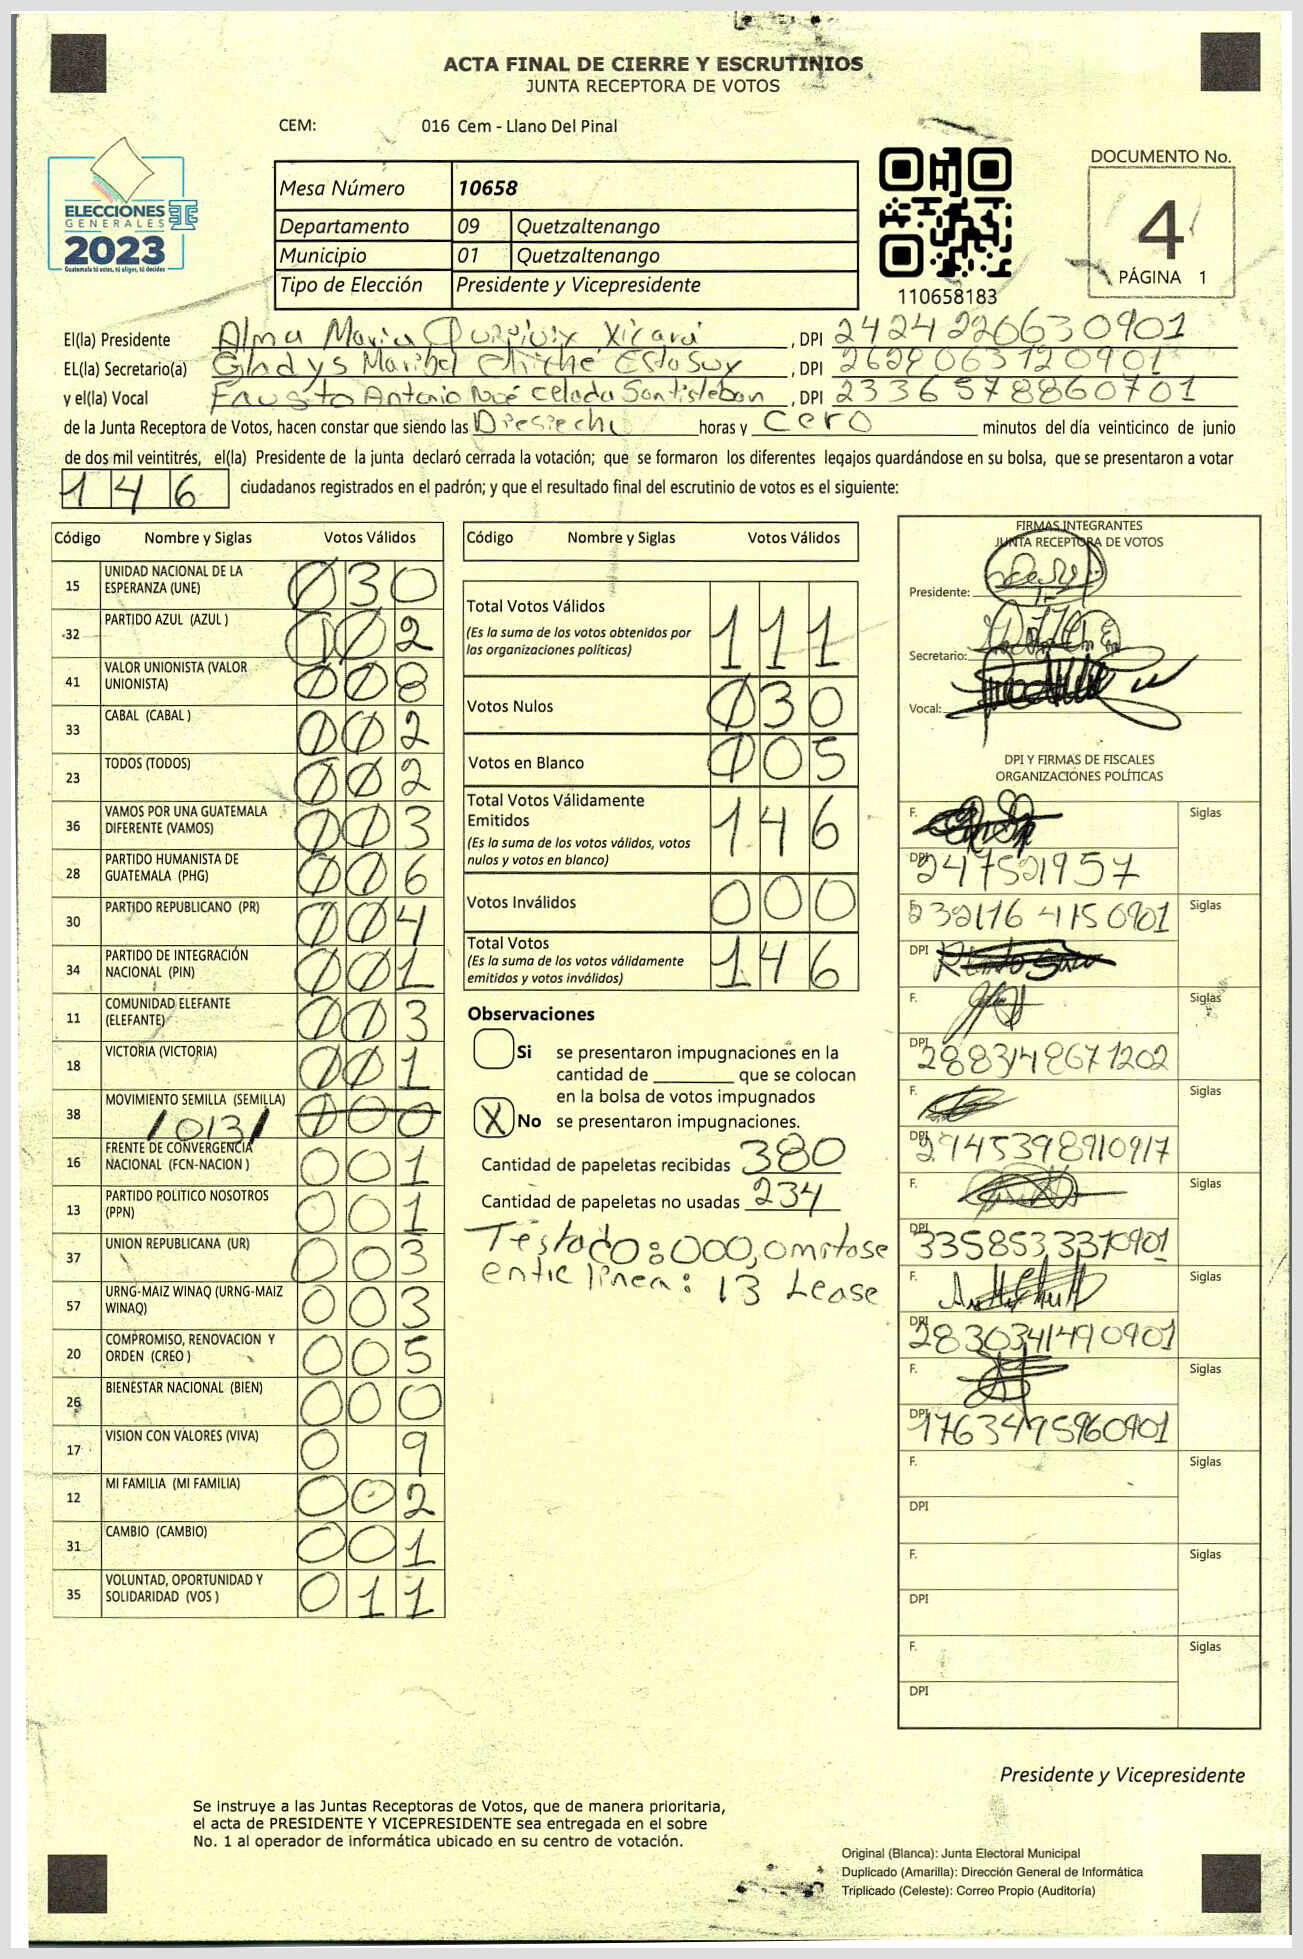 ACTA FINAL DE CIERRE Y ESCRUTINIOS
JUNTA RECEPTORA DE VOTOS
CEM: 016 Cem - Llano Del Pinal
ELECCIONES
GENERALES
2023
Guatemala tú votas, tú eliges, tú decides
Mesa Número 10658
Departamento 09 Quetzaltenango
Municipio 01 Quetzaltenango
Tipo de Elección Presidente y Vicepresidente
110658183
DOCUMENTO No.
4
PÁGINA 1
El(la) Presidente Alma Maria Xicará, DPI 2424226630901
EL(la) Secretario(a) Gladys Maribel, DPI 2628063120901
y el(la) Vocal Fausto Antonio Noé Celada Santisteban, DPI 2336578860701
de la Junta Receptora de Votos, hacen constar que siendo las horas y Cero minutos del día veinticinco de junio
de dos mil veintitrés, el(la) Presidente de la junta declaró cerrada la votación; que se formaron los diferentes legajos guardándose en su bolsa, que se presentaron a votar
146 ciudadanos registrados en el padrón; y que el resultado final del escrutinio de votos es el siguiente:
Código Nombre y Siglas Votos Válidos
15 UNIDAD NACIONAL DE LA ESPERANZA (UNE) 030
32 PARTIDO AZUL (AZUL ) 002
41 VALOR UNIONISTA (VALOR UNIONISTA) 008
33 CABAL (CABAL ) 002
23 TODOS (TODOS) 002
36 VAMOS POR UNA GUATEMALA DIFERENTE (VAMOS) 003
28 PARTIDO HUMANISTA DE GUATEMALA (PHG) 006
30 PARTIDO REPUBLICANO (PR) 004
34 PARTIDO DE INTEGRACIÓN NACIONAL (PIN) 001
11 COMUNIDAD ELEFANTE (ELEFANTE) 003
18 VICTORIA (VICTORIA) 001
38 MOVIMIENTO SEMILLA (SEMILLA) 000
/013/
16 FRENTE DE CONVERGENCIA NACIONAL (FCN-NACION ) 001
13 PARTIDO POLITICO NOSOTROS (PPN) 001
37 UNION REPUBLICANA (UR) 003
57 URNG-MAIZ WINAQ (URNG-MAIZ WINAQ) 003
20 COMPROMISO, RENOVACION Y ORDEN (CREO ) 005
26 BIENESTAR NACIONAL (BIEN) 000
17 VISION CON VALORES (VIVA) 0 9
12 MI FAMILIA (MI FAMILIA) 002
31 CAMBIO (CAMBIO) 001
35 VOLUNTAD, OPORTUNIDAD Y SOLIDARIDAD (VOS ) 011
Código Nombre y Siglas Votos Válidos
Total Votos Válidos 111
(Es la suma de los votos obtenidos por
las organizaciones políticas)
Votos Nulos 030
Votos en Blanco 005
Total Votos Válidamente
Emitidos 146
(Es la suma de los votos válidos, votos
nulos y votos en blanco)
Votos Inválidos 000
Total Votos 146
(Es la suma de los votos válidamente
emitidos y votos inválidos)
Observaciones
Si se presentaron impugnaciones en la
cantidad de ________ que se colocan
en la bolsa de votos impugnados
X No se presentaron impugnaciones.
Cantidad de papeletas recibidas 380
Cantidad de papeletas no usadas 234
Testado:000, Omitase
entre linea: 13 Lease
FIRMAS INTEGRANTES
JUNTA RECEPTORA DE VOTOS
Presidente:
Secretario:
Vocal:
DPI Y FIRMAS DE FISCALES
ORGANIZACIONES POLÍTICAS
F. Siglas
DPI 247521957
F. 232176 4150901 Siglas
DPI
F. Siglas
DPI 2883148671202
F. Siglas
DPI 2945398910917
F. Siglas
DPI 3358533370901
F. Siglas
DPI 2830341490901
F. Siglas
DPI 1763495960901
F. Siglas
DPI
F. Siglas
DPI
F. Siglas
DPI
Presidente y Vicepresidente
Se instruye a las Juntas Receptoras de Votos, que de manera prioritaria,
el acta de PRESIDENTE Y VICEPRESIDENTE sea entregada en el sobre
No. 1 al operador de informática ubicado en su centro de votación.
Original (Blanca): Junta Electoral Municipal
Duplicado (Amarilla): Dirección General de Informática
Triplicado (Celeste): Correo Propio (Auditoría)